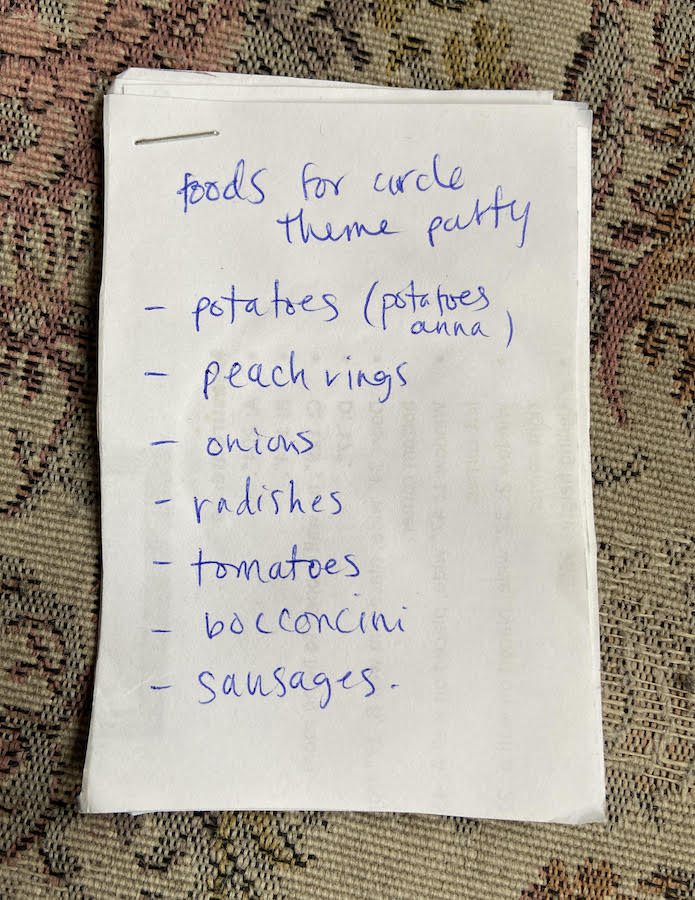 foods for circle
theme party
- potatoes (potatoes
anna)
- peach rings
- onions
- radishes
- tomatoes
- bocconcini
- sausages.